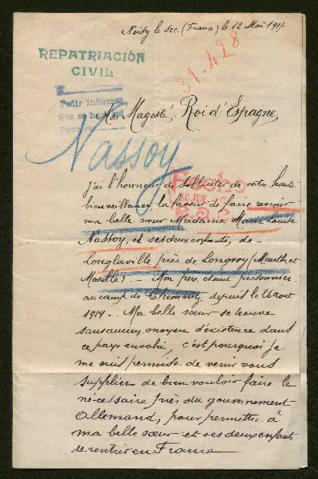 Noisy le Sec. (France) le 12 Mai 1917
REPATRIACIÓN
CIVIL
31.428
Pedir inform
Que se
Sa Majesté, Roi d'Espagne,
Nassoy
J'ai l'honneur de solliciter de votre haute
bienveillance la faveur de faire revenir
ma belle sœur Madame Marie Louise
Nassoy, et ses deux enfants, de
Longlaville près de Longwy (Meurthe et
Moselle). — Mon frère étant prisonnier
au camp de Chemnitz depuis le 26 août
1914. Ma belle sœur se trouve
sans aucun moyen d'existence dans
ce pays envahi, c'est pourquoi je
me suis permise de venir vous
supplier de bien vouloir faire le
nécessaire près du gouvernement
Allemand, pour permettre à
ma belle sœur et ses deux enfants
de rentrer en France